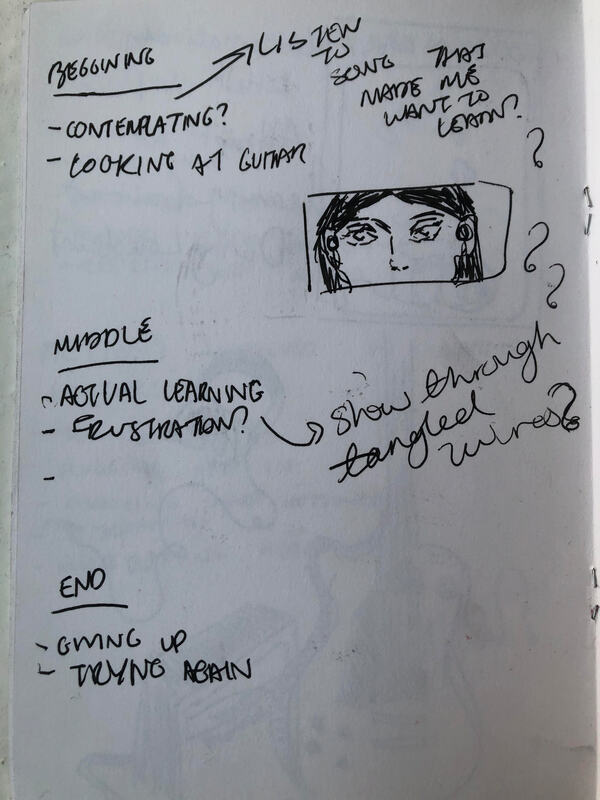 BEGGINING
LISTEN
TO
SONG THAT
MADE ME
WANT TO
LEARN?
- CONTEMPLATING?
- LOOKING AT GUITAR
?
?
?
MIDDLE
- ACTUAL LEARNING
- FRUSTRATION?
show through
tangled
wires?
-
END
- GIVING UP
- TRYING AGAIN